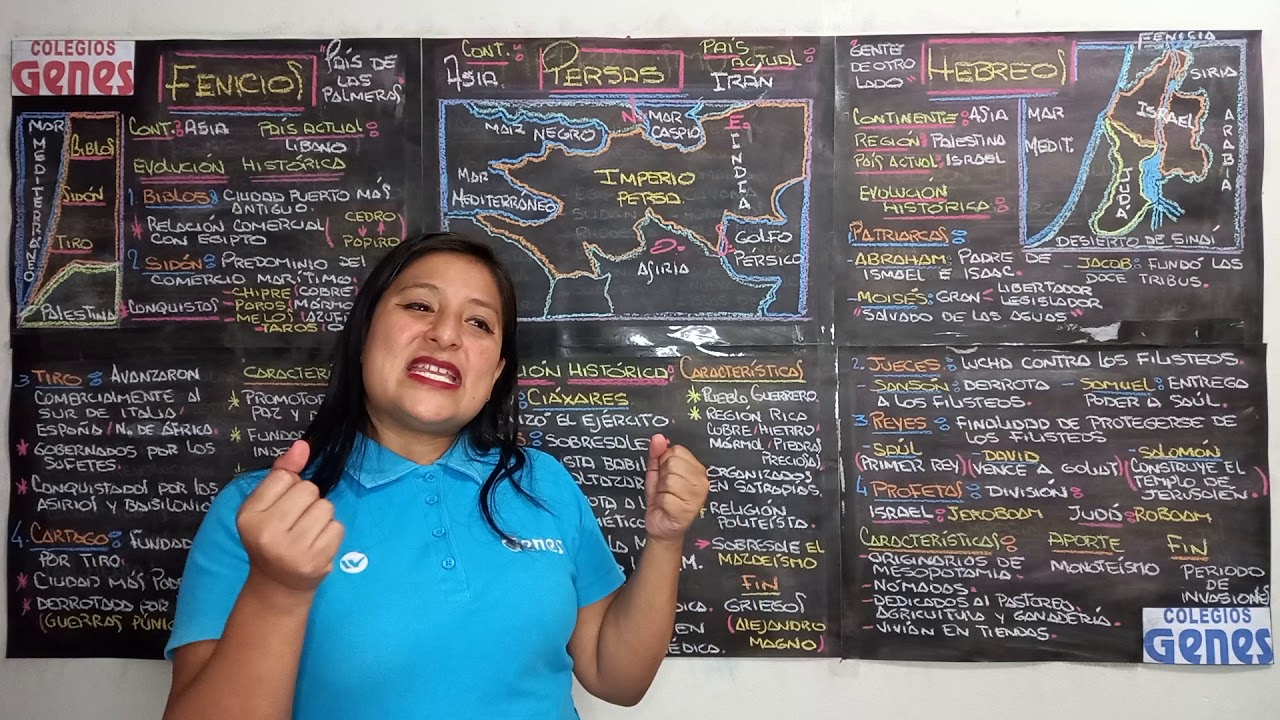 COLEGIOS
GENES
FENICIOS
"PAÍS DE
LAS
PALMERAS
MAR
MEDITERRÁNEO
BIBLOS
SIDÓN
TIRO
PALESTINA
CONT.: ASIA PAÍS ACTUAL:
LIBANO
EVOLUCIÓN HISTÓRICA
1. BIBLOS: CIUDAD PUERTO MÁS
ANTIGUO.
* RELACIÓN COMERCIAL
CON EGIPTO
(CEDRO
PAPIRO)
2. SIDÓN: PREDOMINIO DEL
COMERCIO MARÍTIMO
* CONQUISTAS
- CHIPRE (COBRE)
- PAROS (MÁRMOL
- MELOS (AZUFRE
- TAROS (O
3. TIRO: AVANZARON
COMERCIALMENTE AL
SUR DE ITALIA/
ESPAÑA/ N. DE ÁFRICA.
* GOBERNADOS POR LOS
SUFETES.
* CONQUISTADOS POR LOS
ASIRIOS Y BABILONIO
4. CARTAGO: FUNDADA
POR TIRO.
* CIUDAD MÁS PODE
* DERROTADA POR
(GUERRAS PÚNIC
CARACTERÍ
* PROMOTOR
PAZ Y
* FUNDA
INDE
CONT.:
ASIA.
PERSAS
PAÍS
ACTUAL:
IRÁN
MAR NEGRO
N.
MAR
CASPIO
E.
INDIA
MAR
MEDITERRÁNEO
IMPERIO
PERSA
O.
ASIRIA
GOLFO
PÉRSICO
CIÓN HISTÓRICA:
CIÁXARES
IZO EL EJÉRCITO.
S: SOBRESALE
STA BABIL
ALTAZAR
OTA A L
MÉTICO
LA M
M.
DICA.
EN
MÉDICA.
CARACTERÍSTICAS
* PUEBLO GUERRERO.
* REGIÓN RICA
COBRE/HIERRO/
MÁRMOL/PIEDRAS
PRECIOSAS
ORGANIZADOS
EN SATRAPÍAS.
RELIGIÓN
POLITEÍSTA.
SOBRESALE EL
MAZDEÍSMO
FIN
GRIEGOS
(ALEJANDRO
MAGNO)
"GENTE
DE OTRO
LADO"
HEBREOS
CONTINENTE: ASIA
REGIÓN: PALESTINA
PAÍS ACTUAL: ISRAEL
EVOLUCIÓN
HISTÓRICA:
FENICIA
SIRIA
MAR
MEDIT.
ISRAEL
JUDÁ
ARABIA
DESIERTO DE SINAÍ
1. PATRIARCAS:
- ABRAHAM: PADRE DE
ISMAEL E ISAAC.
- JACOB: FUNDÓ LAS
DOCE TRIBUS.
- MOISÉS: GRAN < LIBERTADOR
LEGISLADOR
"SALVADO DE LAS AGUAS"
2. JUECES: LUCHA CONTRA LOS FILISTEOS.
- SANSÓN: DERROTA
A LOS FILISTEOS.
- SAMUEL: ENTREGA
PODER A SAÚL.
3. REYES: FINALIDAD DE PROTEGERSE DE
LOS FILISTEOS
- SAÚL
(PRIMER REY)
- DAVID
(VENCE A GOLIAT)
- SALOMÓN
(CONSTRUYE EL
TEMPLO DE
JERUSALÉN.)
4. PROFETAS: DIVISIÓN:
ISRAEL: JEROBOAM JUDÁ: ROBOAM
CARACTERÍSTICAS:
- ORIGINARIOS DE
MESOPOTAMIA.
- NÓMADAS.
- DEDICADOS AL PASTOREO,
AGRICULTURA Y GANADERÍA.
- VIVÍAN EN TIENDAS.
APORTE
MONOTEÍSMO
FIN
PERIODO
DE
INVASIONES
COLEGIOS
GENES
Genes